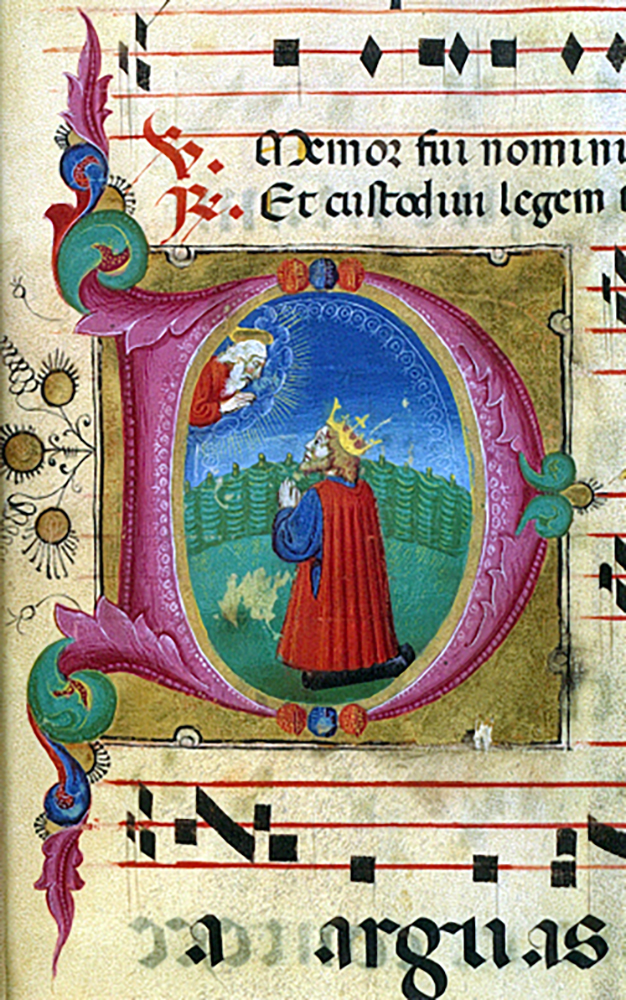 V. Memor fui nomini
R. Et custodiui legem t
D
a arguas